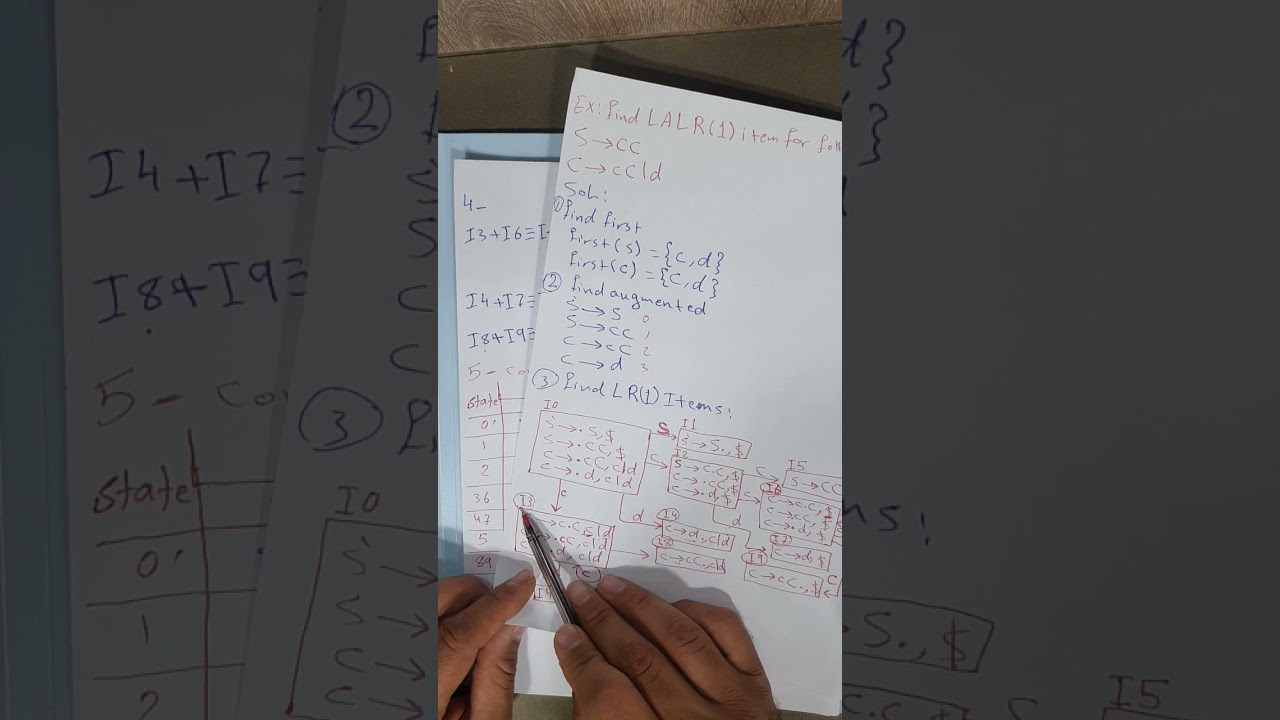 Ex: find LALR(1) item for foll
S → CC
C → cC|d
Soln:
① find first
first(S) = {c,d}
first(C) = {c,d}
② find augmented
S' → S 0
S → CC 1
C → cC 2
C → d 3
③ find LR(1) Items:
I0
S' → .S,$
S → .CC,$
C → .cC,c|d
C → .d,c|d
S
I1
S' → S.,$
C
I2
S → C.C,$
C → .cC,$
C → .d,$
C
I5
S → CC
c
I6
C → c.C,$
C → .cC,$
C → .d,$
c
d
I3
C → c.C,c|d
.cC,c|d
.d,c|d
d
I4
C → d.,c|d
I8
C → cC.,c|d
I7
C → d.,$
I9
C → cC.,$
C
(c)
I4
4-
I3+I6≡I
I4+I7≡
I8+I9≡
5- co
State
0
1
2
36
47
5
89
I4+I7≡
I8+I9≡
5- co
State
0
1
2
②
③
I0
d}
}
ms:
S.,$
I5